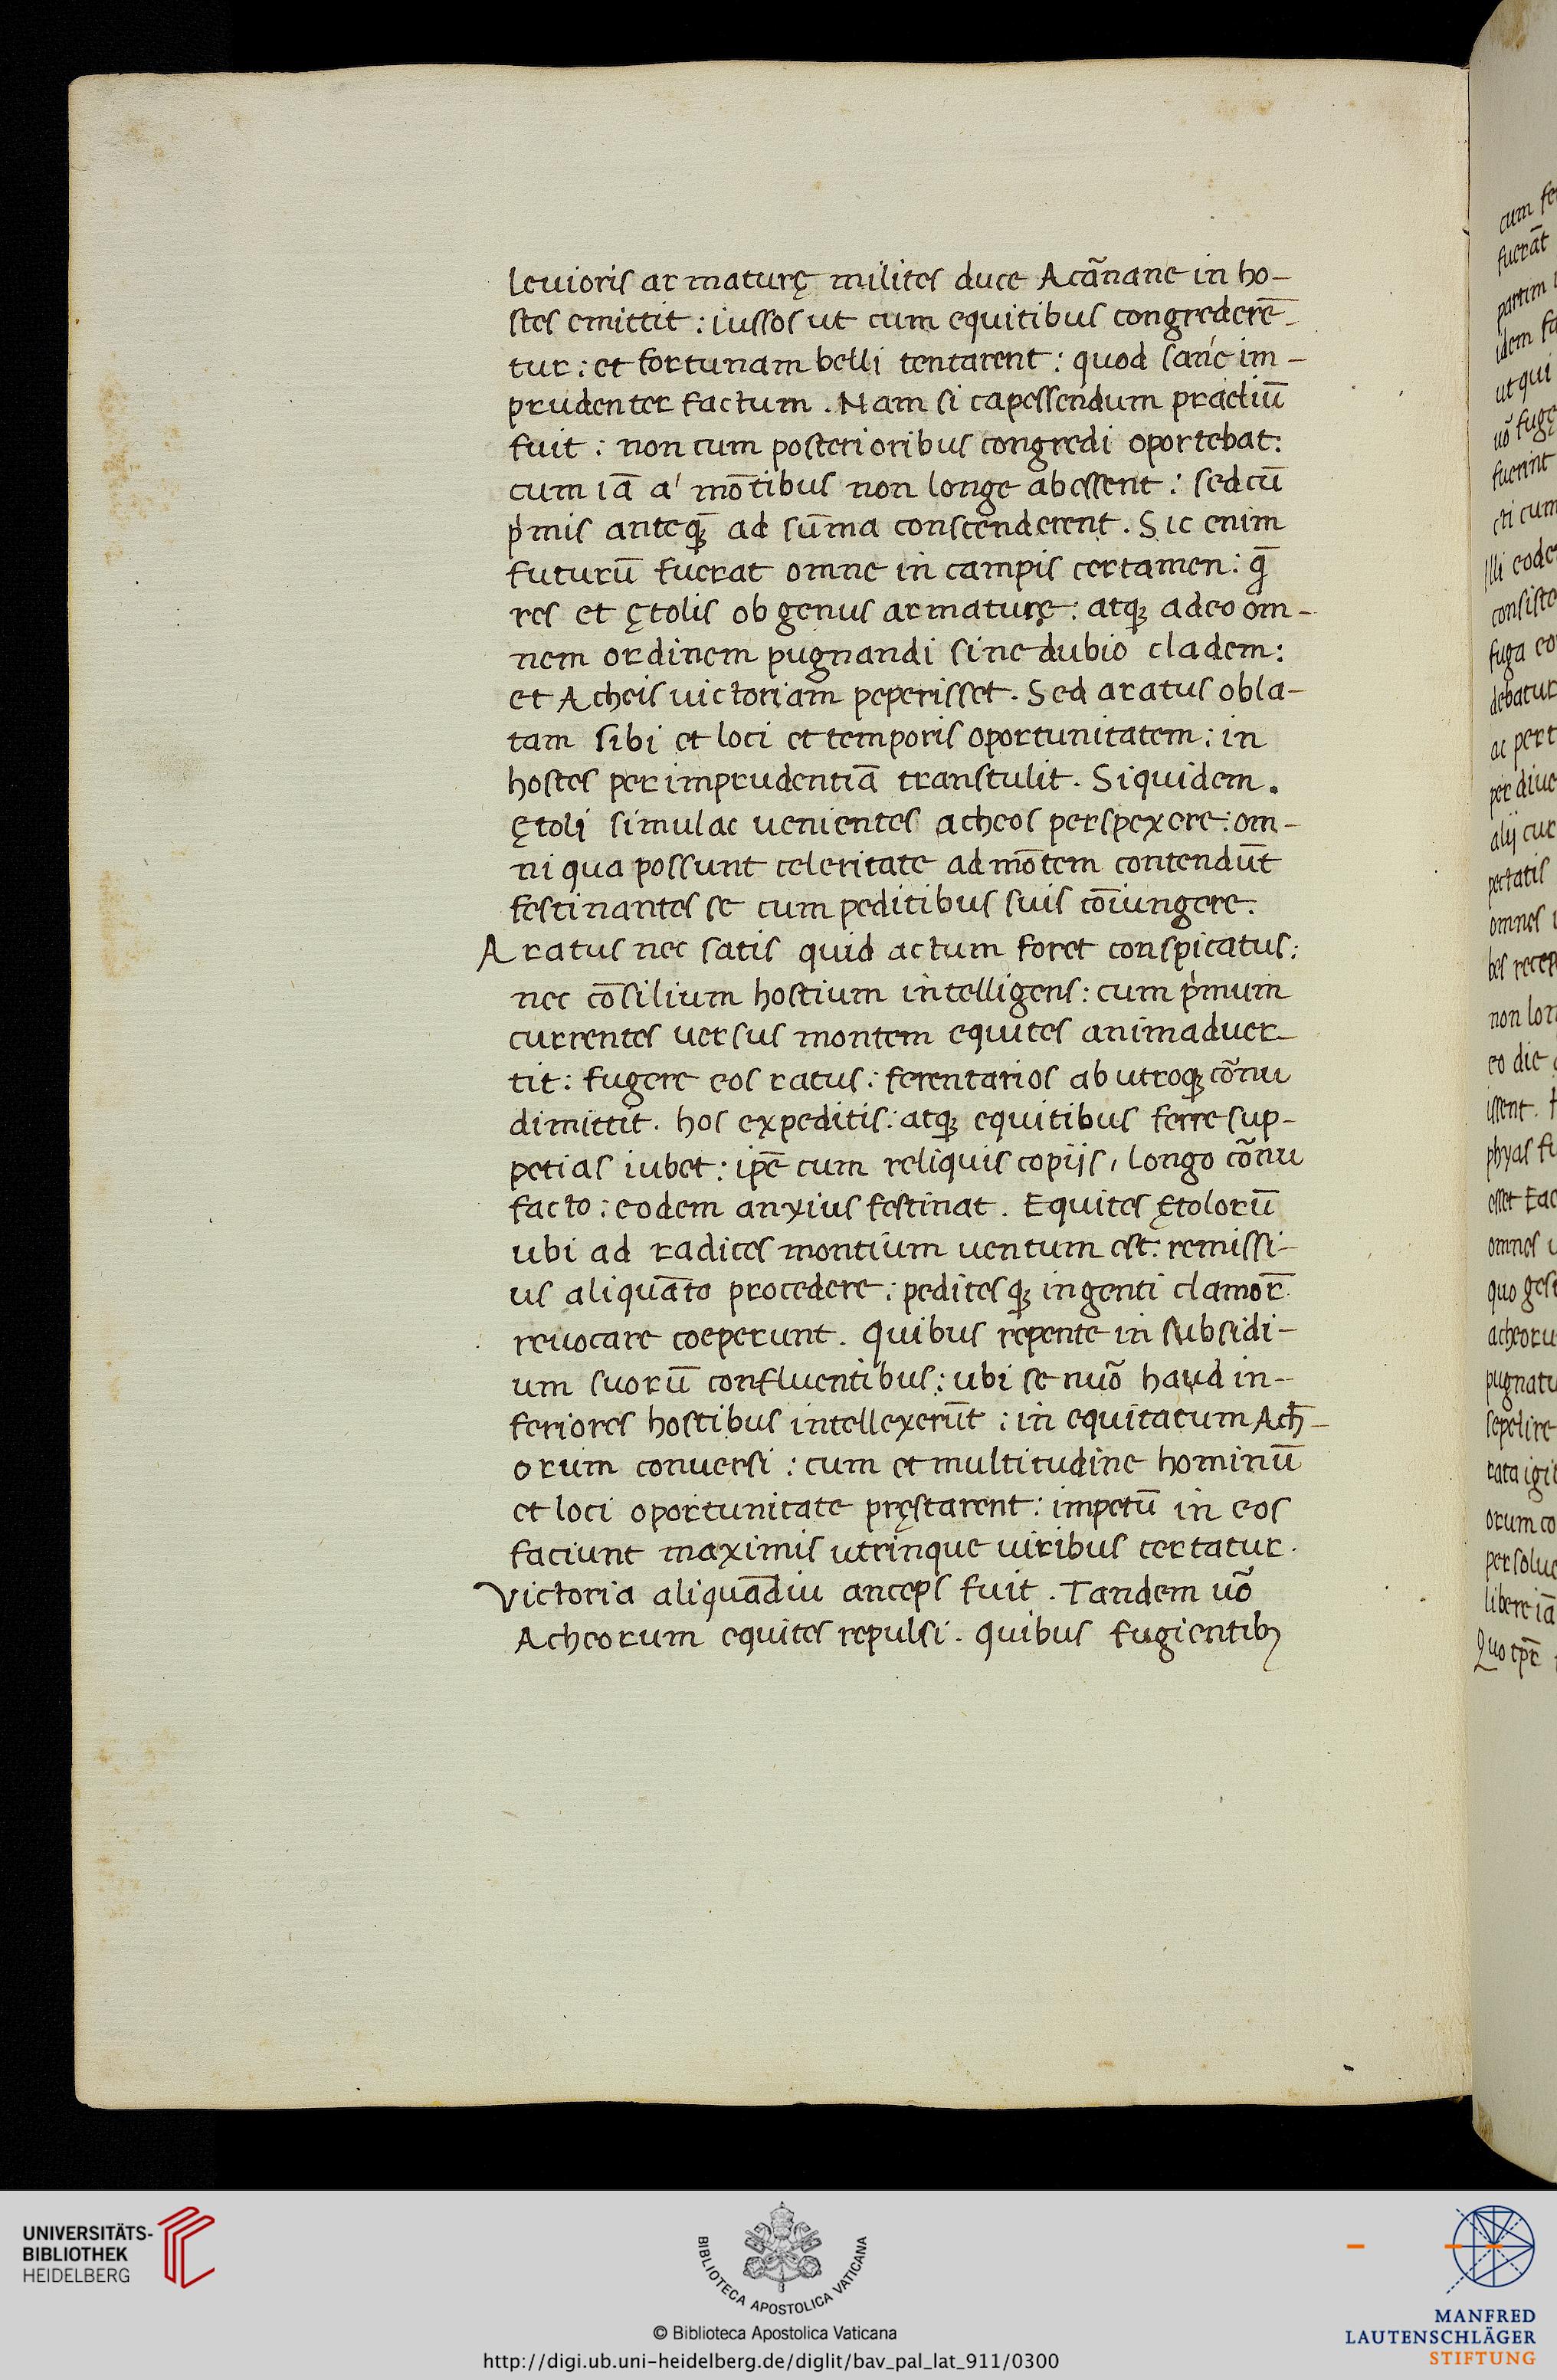 leuioris armaturę milites duce Acãnane in ho-
stes emittit: iussos ut cum equitibus congrederē-
tur: et fortunam belli tentarent: quod sané im-
prudenter factum. Nam si capessendum praeliū
fuit: non cum posterioribus congredi oportebat:
cum iā a' mōtibus non longe abessent: sed cū
pͥmis anteqꝫ̄ ad sūma conscenderent. Sic enim
futurū fuerat omne in campis certamen: q̄
res et ętolis ob genus armaturę: atqꝫ adeo om-
nem ordinem pugnandi sine dubio cladem:
et Acheis uictoriam peperisset. Sed aratus obla-
tam sibi et loci et temporis oportunitatem: in
hostes per imprudentiā transtulit. Siquidem.
ętoli simulac uenientes acheos perspexere: om-
ni qua possunt celeritate ad mōtem contendūt
festinantes se cum peditibus suis cōiungere.
Aratus nec satis quid actum foret conspicatus:
nec cōsilium hostium intelligens: cum pͥmum
currentes uersus montem equites animaduer-
tit: fugere eos ratus: ferentarios ab utroqꝫ cõnu
dimittit. hos expeditis: atqꝫ equitibus ferre sup-
petias iubet: ipē cum reliquis copijs, longo cõnu
facto: eodem anxius festinat. Equites ętolorū
ubi ad radices montium uentum est: remissi-
us aliquāto procedere: peditesqꝫ ingenti clamor̄
reuocare coeperunt. Quibus repente in subsidi-
um suorū confluentibus: ubi se nuõ haud in-
feriores hostibus intellexerūt: in equitatum Ach̄-
orum conuersi: cum et multitudine hominū
et loci oportunitate pręstarent: impetū in eos
faciunt maximis utrinque uiribus certatur.
Victoria aliquādiu anceps fuit. Tandem uõ
Acheorum equites repulsi. quibus fugientibꝫ
cum fe
fuerāt
partim
idem fa
ut qui
uõ fugę
fuerint
cti cum
Illi eode
consiste
fuga eo
debatur
ac pert
per diue
alij cur
pertatis
omnes
bes recep
non lon
eo die
issent.
phyas fu
esset Eac
omnes
quo gest
acheoru
pugnatu
sepelire
rata igit
orum co
persolue
libere iā
Quo tpr̄
UNIVERSITÄTS-
BIBLIOTHEK
HEIDELBERG
BIBLIOTECA APOSTOLICA VATICANA
© Biblioteca Apostolica Vaticana
http://digi.ub.uni-heidelberg.de/diglit/bav_pal_lat_911/0300
MANFRED
LAUTENSCHLÄGER
STIFTUNG